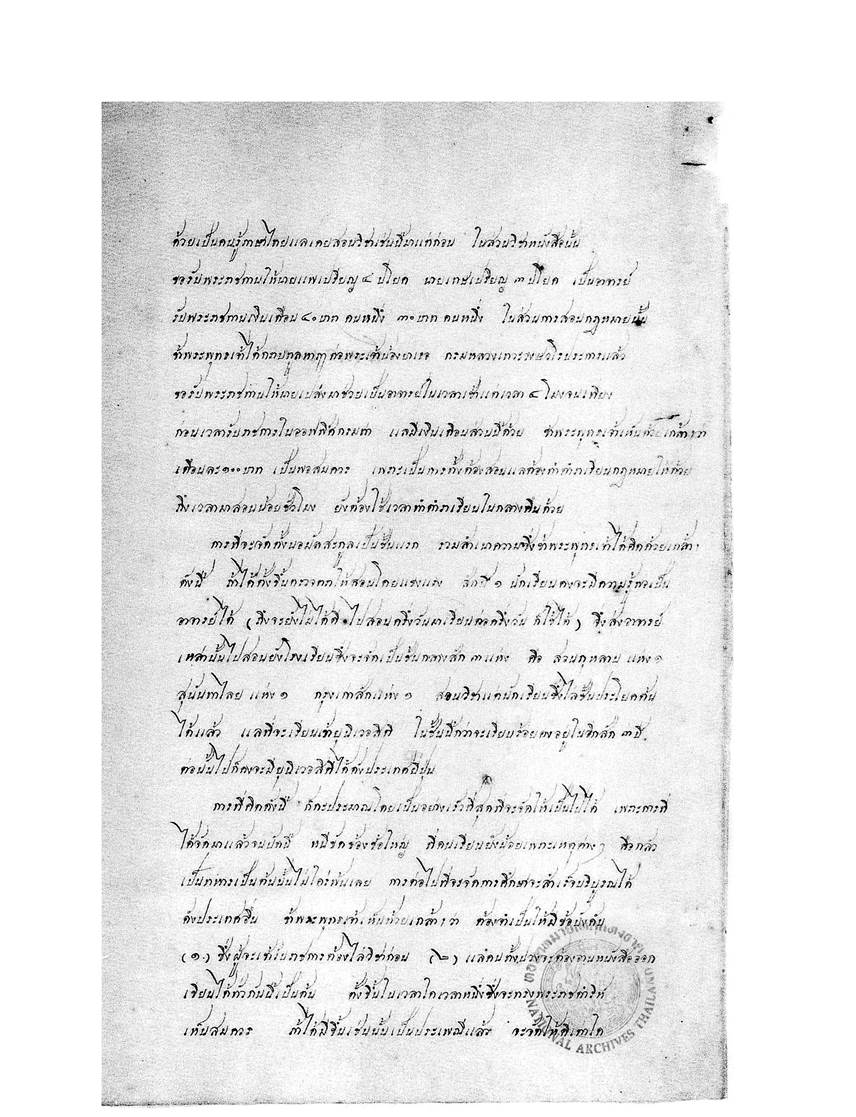 ด้วยเปนคนรู้ภาษาไทยแลเคยสอนวิชาเช่นนี้มาแต่ก่อน ในส่วนวิชาหนังสือนั้น
ขอรับพระราชทานให้นายแพเปรียญ ๔ ประโยค นายเกษเปรียญ ๓ ประโยค เปนอาจารย์
รับพระราชทานเงินเดือน ๔๐ บาท คนหนึ่ง ๓๐ บาท คนหนึ่ง ในส่วนการสอนกฎหมายนั้น
ข้าพระพุทธเจ้าได้กราบทูลหารือต่อพระเจ้าน้องยาเธอ กรมหลวงเทวะวงษวโรประการแล้ว
ขอรับพระราชทานให้นายเปล่งมาช่วยเป็นอาจารย์ในเวลาเช้าแต่เวลา ๔ โมงจนเที่ยง
ก่อนเวลารับราชการในออฟฟิศกรมท่า แลมีเงินเดือนส่วนนี้ด้วย ข้าพระพุทธเจ้าเห็นด้วยเกล้าฯ ว่า
เดือนละ ๑๐๐ บาท เป็นพอสมควร เพราะเป็นการทั้งต้องสอนแลต้องทำตำราเรียนกฎหมายให้ด้วย
ถึงเวลามาสอนน้อยชั่วโมง ยังต้องใช้เวลาทำตำราเรียนในกลางคืนด้วย
การที่จะจัดตั้งนอมัลสกูลเป็นชั้นแรก รวมสำเนาความซึ่งข้าพระพุทธเจ้าได้คิดด้วยเกล้าฯ
ดังนี้ ถ้าได้ตั้งขึ้นตรวจตราให้สอนโดยแขงแรง สักปี ๑ นักเรียนคงจะมีความรู้พอเป็น
อาจารย์ได้ (ถึงจะยังไม่ได้ดี ไปสอนครึ่งวันมาเรียนต่อครึ่งวัน ก็ใช้ได้) จึงส่งอาจารย์
เหล่านั้นไปสอนยังโรงเรียนซึ่งจะจัดเป็นชั้นกลางสัก ๓ แห่ง คือ สวนกุหลาบ แห่ง ๑
สุนันทาไลย แห่ง ๑ กรุงเก่าสักแห่ง ๑ สอนวิชาแก่นักเรียนซึ่งไล่ชั้นประโยคต้น
ได้แล้ว แลที่จะเรียนเข้ายูนิเวอสิตี ในชั้นนี้กว่าจะเรียบร้อยคงอยู่ในอีกสัก ๓ ปี
ต่อนั้นไปก็คงจะมียูนิเวอสิตีได้ดังประเทศญี่ปุ่น
การที่คิดดังนี้ ก็กะประมาณโดยเป็นอย่างเร็วที่สุดที่จะจัดให้เป็นไปได้ เพราะการที่
ได้จัดมาแล้วจนบัดนี้ หนีขัดข้องข้อใหญ่ ที่คนเรียนยังน้อยเพราะเหตุต่างๆ คือกลัว
เป็นทหารเป็นต้นนั้นไม่ใคร่พ้นเลย การต่อไปที่จะจัดการศึกษาจะสำเร็จบริบูรณ์ได้
ดังประเทศอื่น ข้าพระพุทธเจ้าเห็นด้วยเกล้าฯ ว่า ต้องจำเป็นให้มีข้อบังคับ
(๑) ซึ่งผู้จะเข้ารับราชการต้องไล่วิชาก่อน (๒) แลคนทั้งปวงจะต้องอ่านหนังสือออก
เขียนได้ทั่วกันนี้เป็นต้น ตั้งขึ้นในเวลาใดเวลาหนึ่งซึ่งจะทรงพระราชดำริห์
เห็นสมควร ถ้าได้มีขึ้นเช่นนั้นเป็นประเพณีแล้ว จะจัดให้ดีเท่าใด
หอจดหมายเหตุแห่งชาติ
NATIONAL ARCHIVES THAILAND